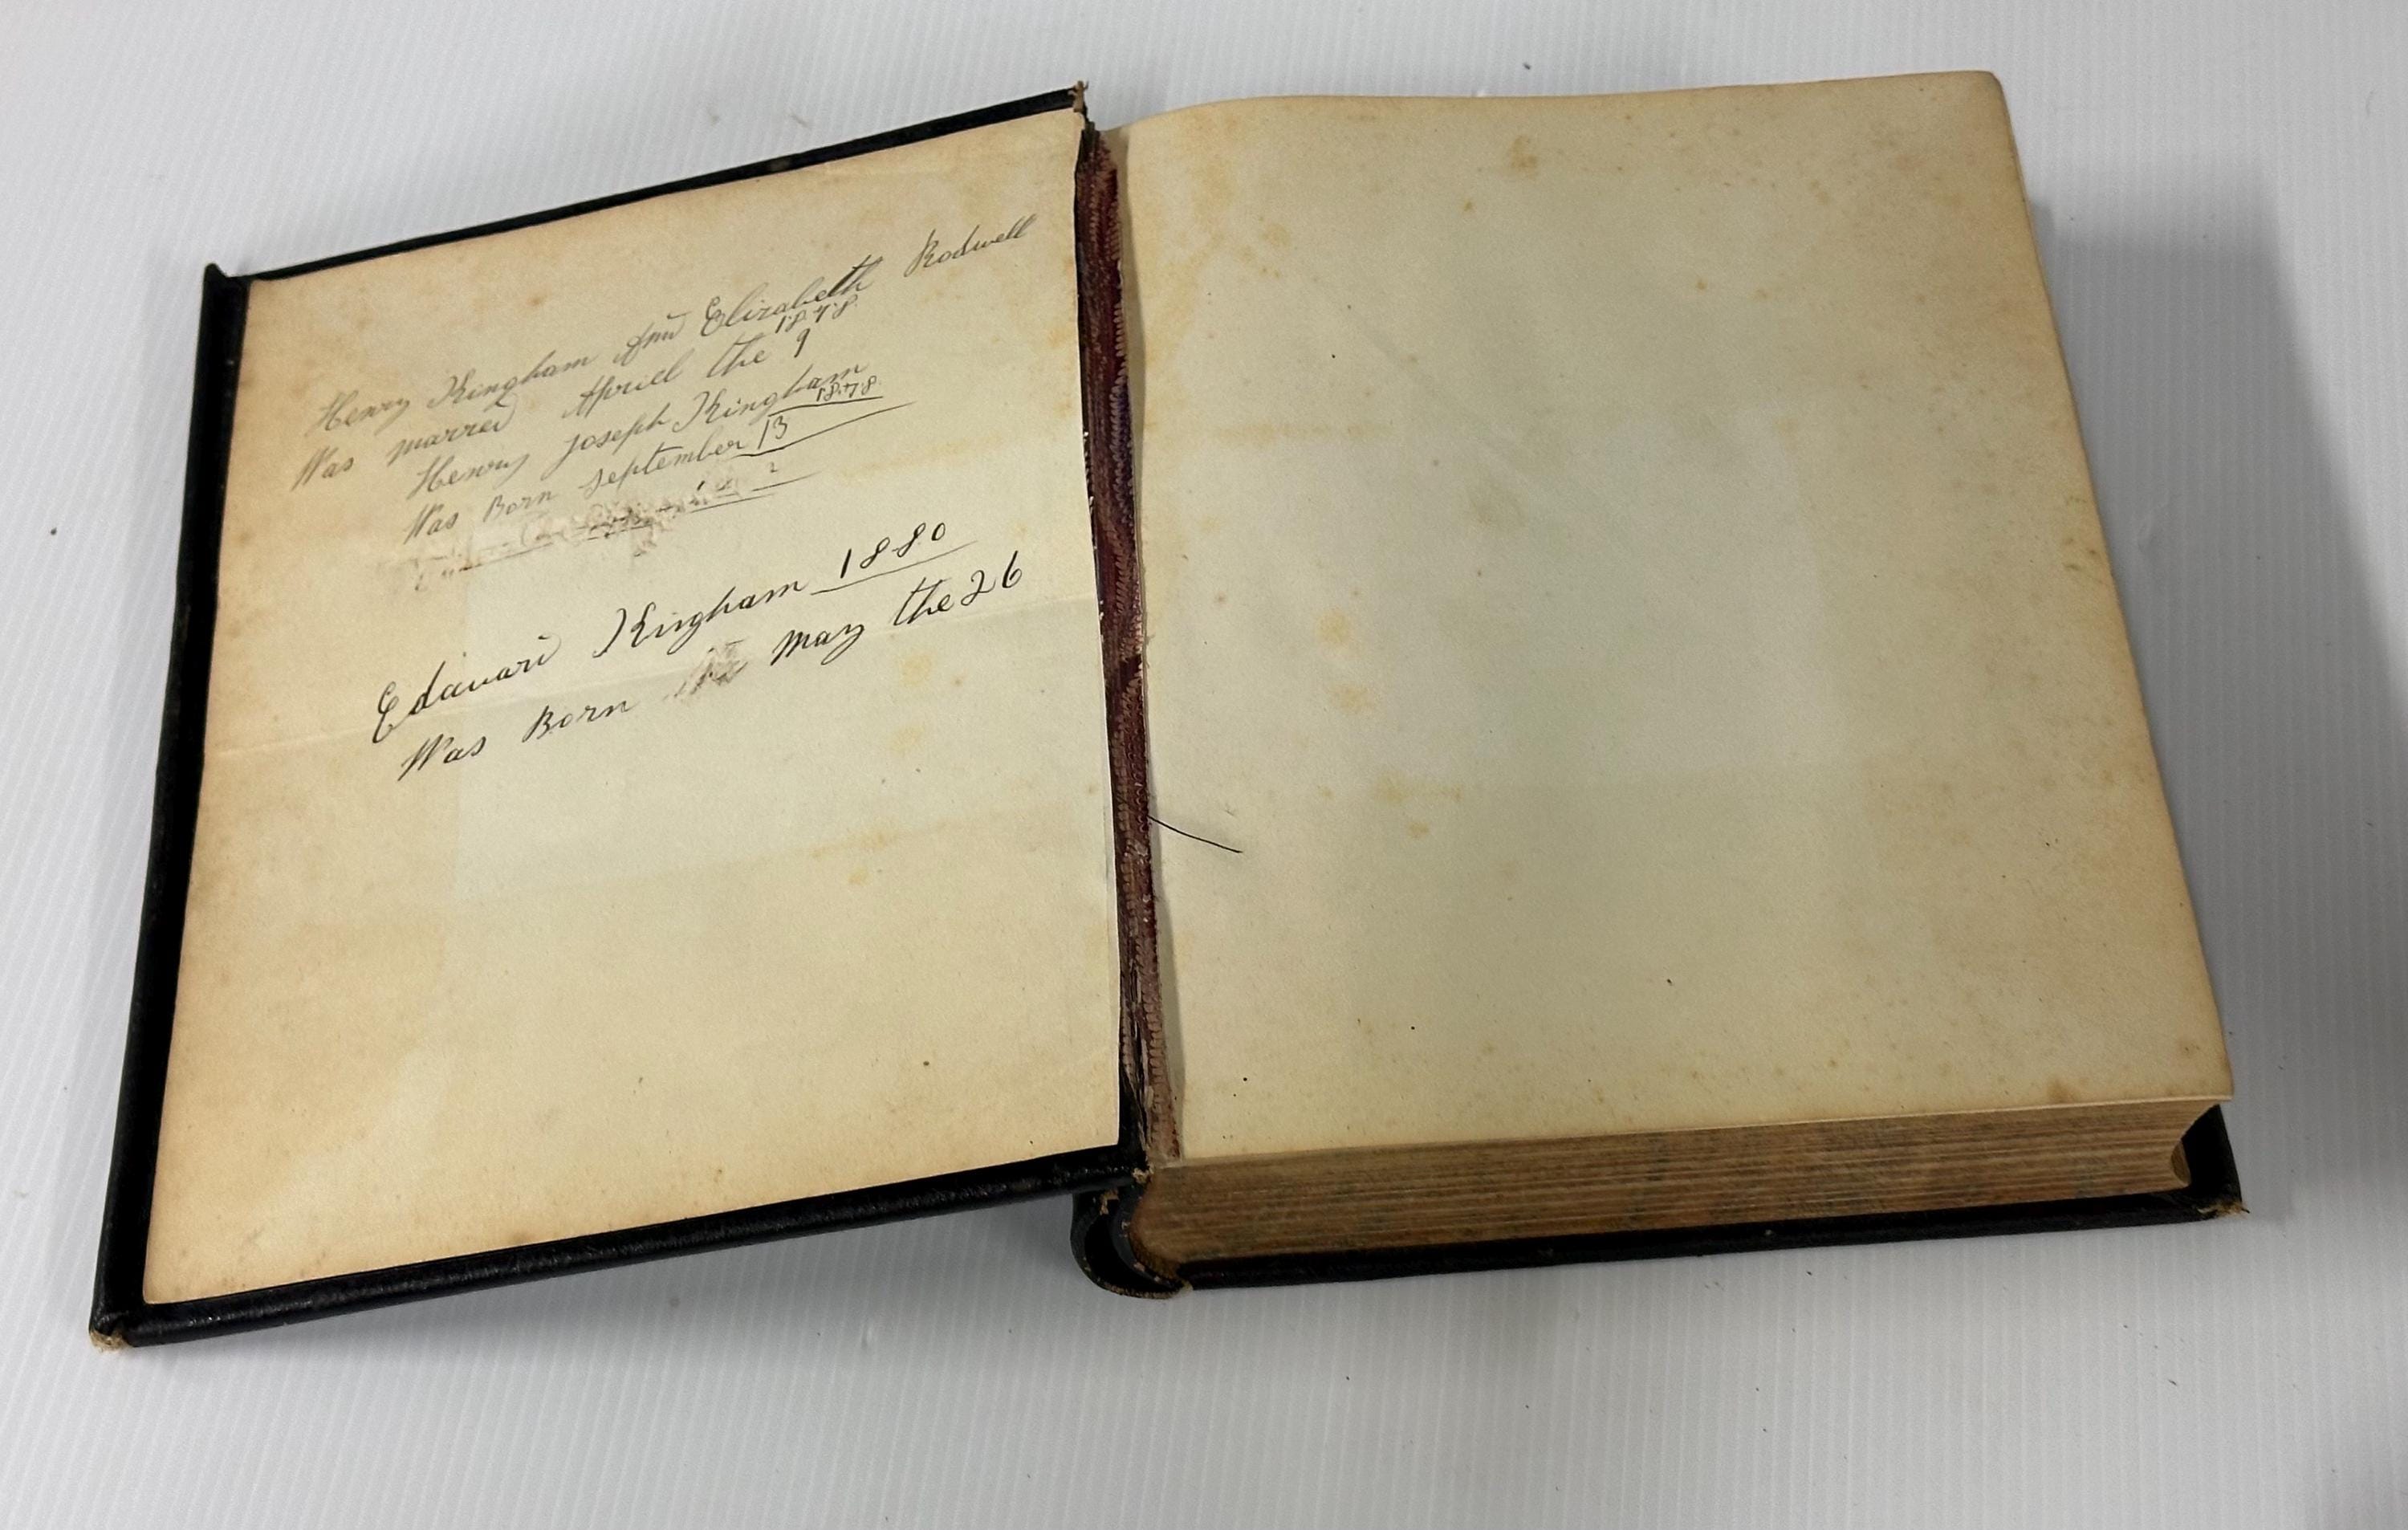 Henry Kingham And Elizabeth Rodwell
Was married Aprill the 9 1878
Henry Joseph Kingham
Was Born September 13 1878
Edward Kingham 1880
Was Born May the 26